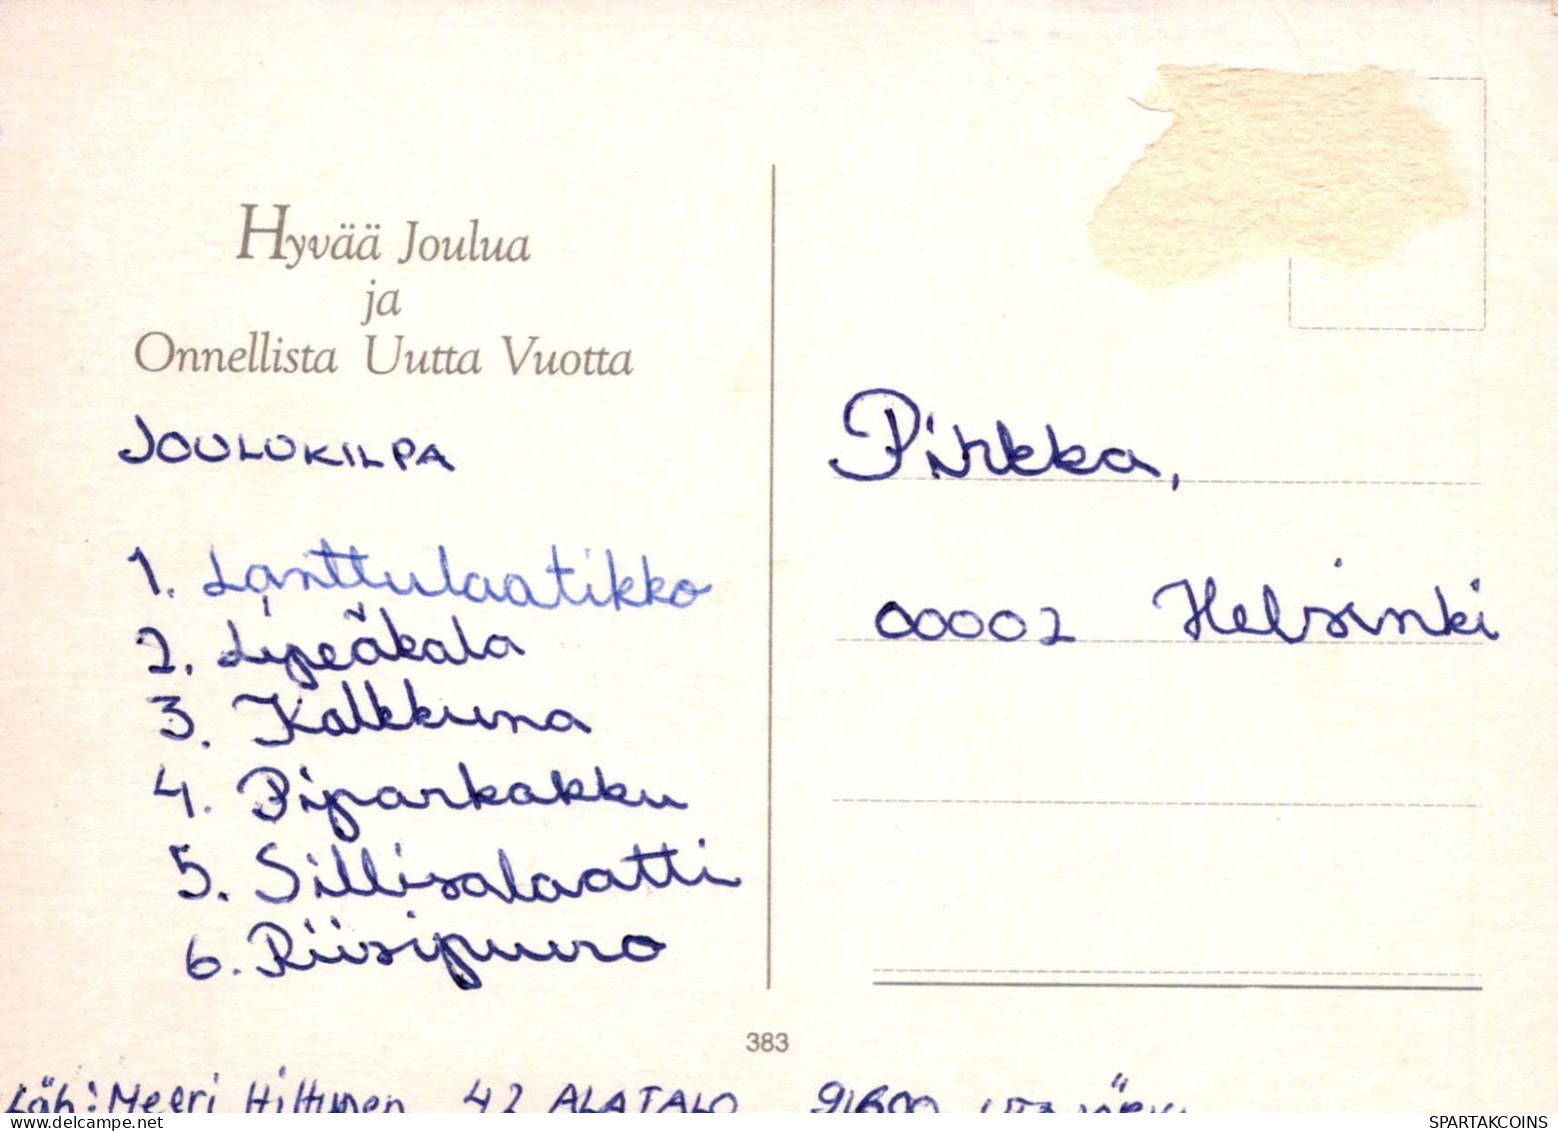 Hyvää Joulua
ja
Onnellista Uutta Vuotta
JOULUKILPA
1. Lanttulaatikko
2. Lipeäkala
3. Kalkkuna
4. Piparkakku
5. Sillisalaatti
6. Riisipuuro
Pirkka,
00002 Helsinki
383
Läh: Meeri Hiltunen 42 ALATALO 91600
SPARTAKCOINS